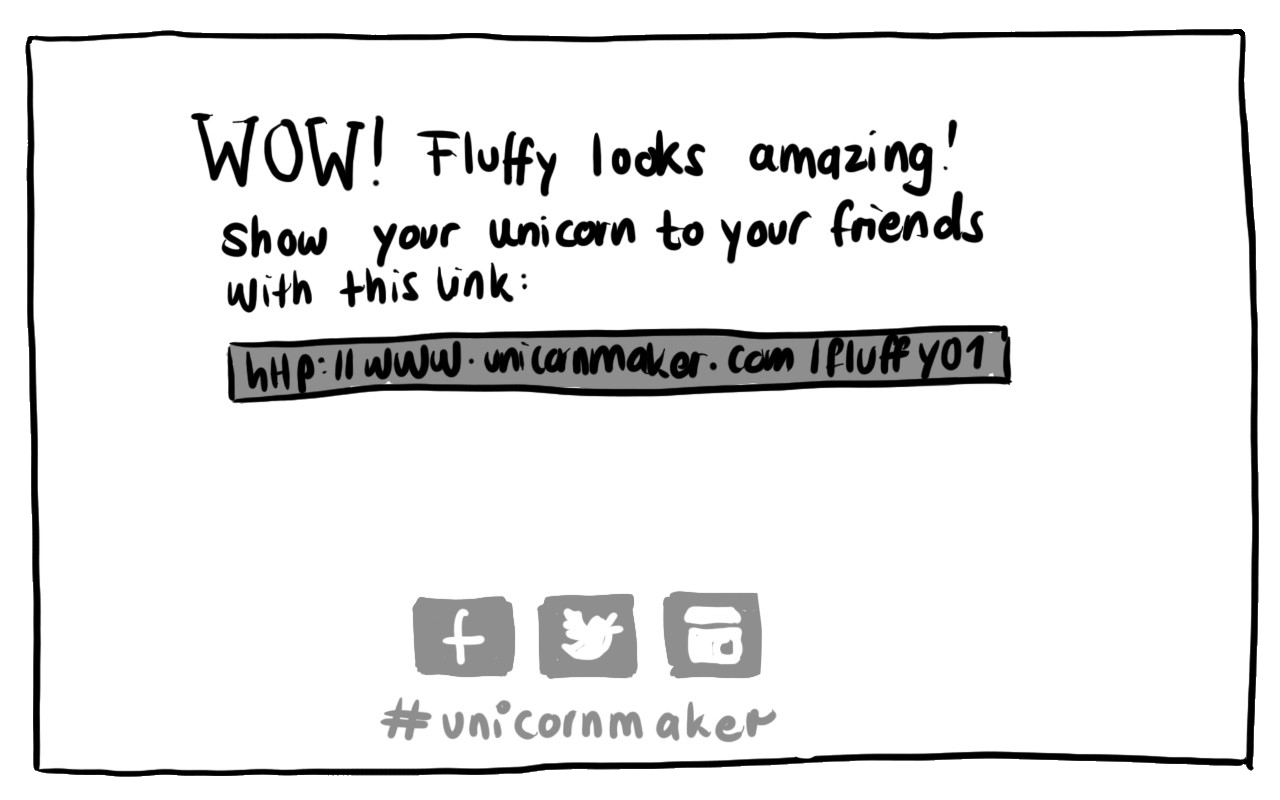 WOW! Fluffy looks amazing!
show your unicorn to your friends
with this link:
http://www.unicornmaker.com/fluffy01
f
#unicornmaker